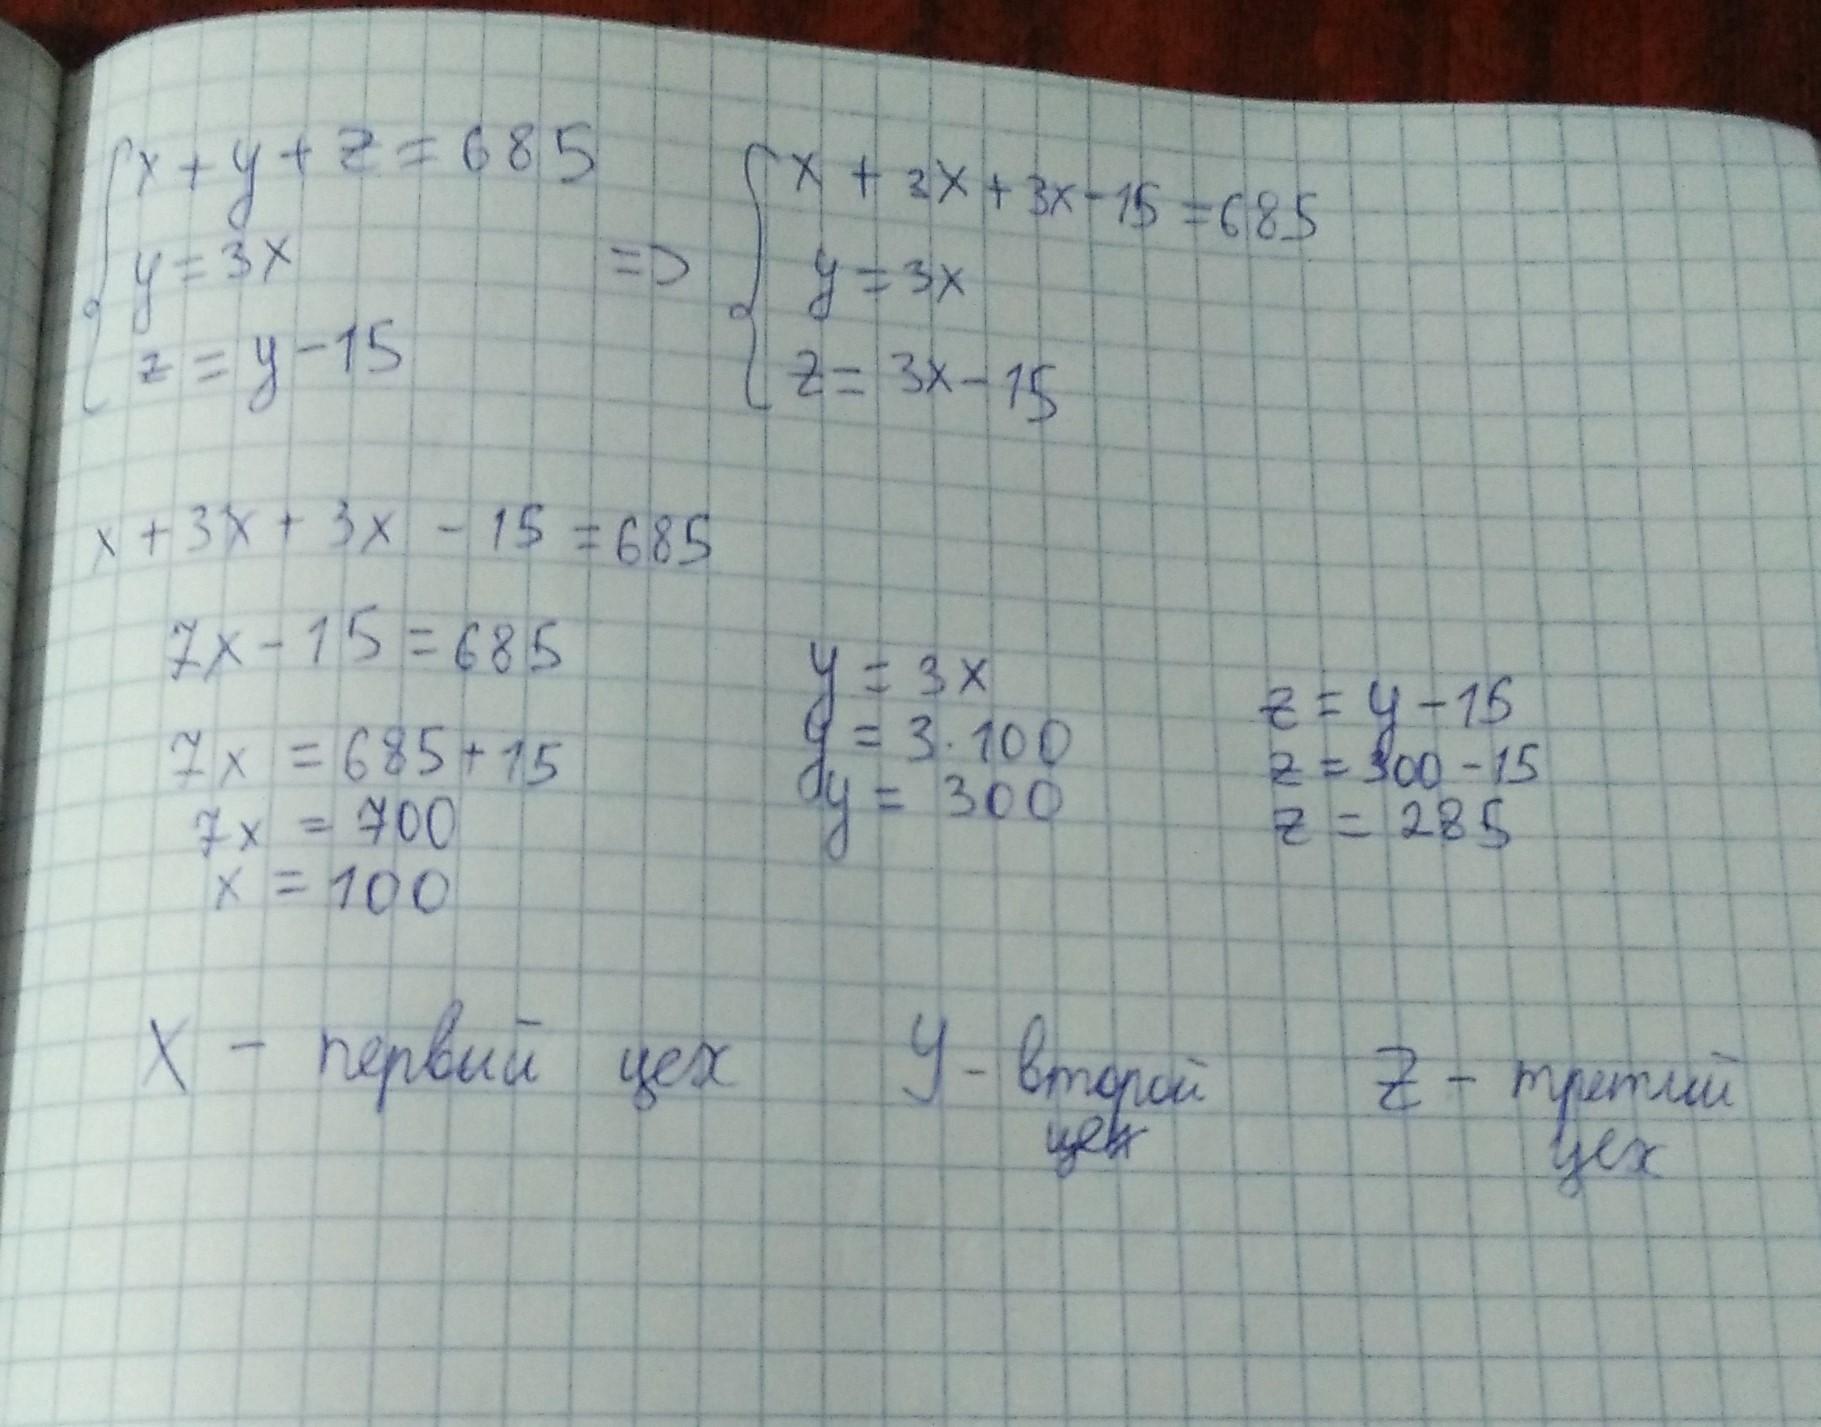 x + y + z = 685
y = 3x
z = y - 15
=>
x + 3x + 3x - 15 = 685
y = 3x
z = 3x - 15
x + 3x + 3x - 15 = 685
7x - 15 = 685
7x = 685 + 15
7x = 700
x = 100
y = 3x
y = 3 · 100
y = 300
z = y - 15
z = 300 - 15
z = 285
X - первый цех
У - второй
цех
Z - третий
цех